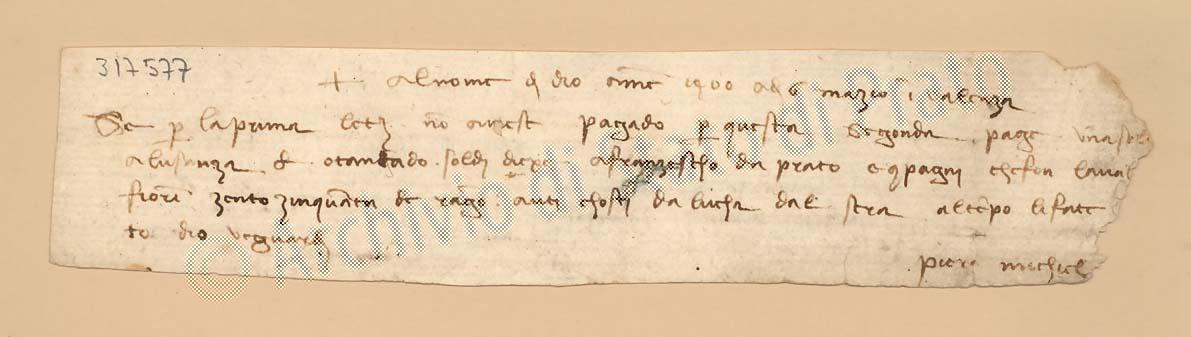 317577
+ al nome di dio ame 1400 adi 6 marzo i valenza
Se per la prima letʒ no avest pagado per questa segonda page una
a lusanza otantado soldi a franzescho da prato e conpagni che son la
fiori zento zinquanta de rago avti chosti da lucha dal sera al tenpo li fate
to dio ve guardi
piero michiel
© Archivio di Stato di Prato